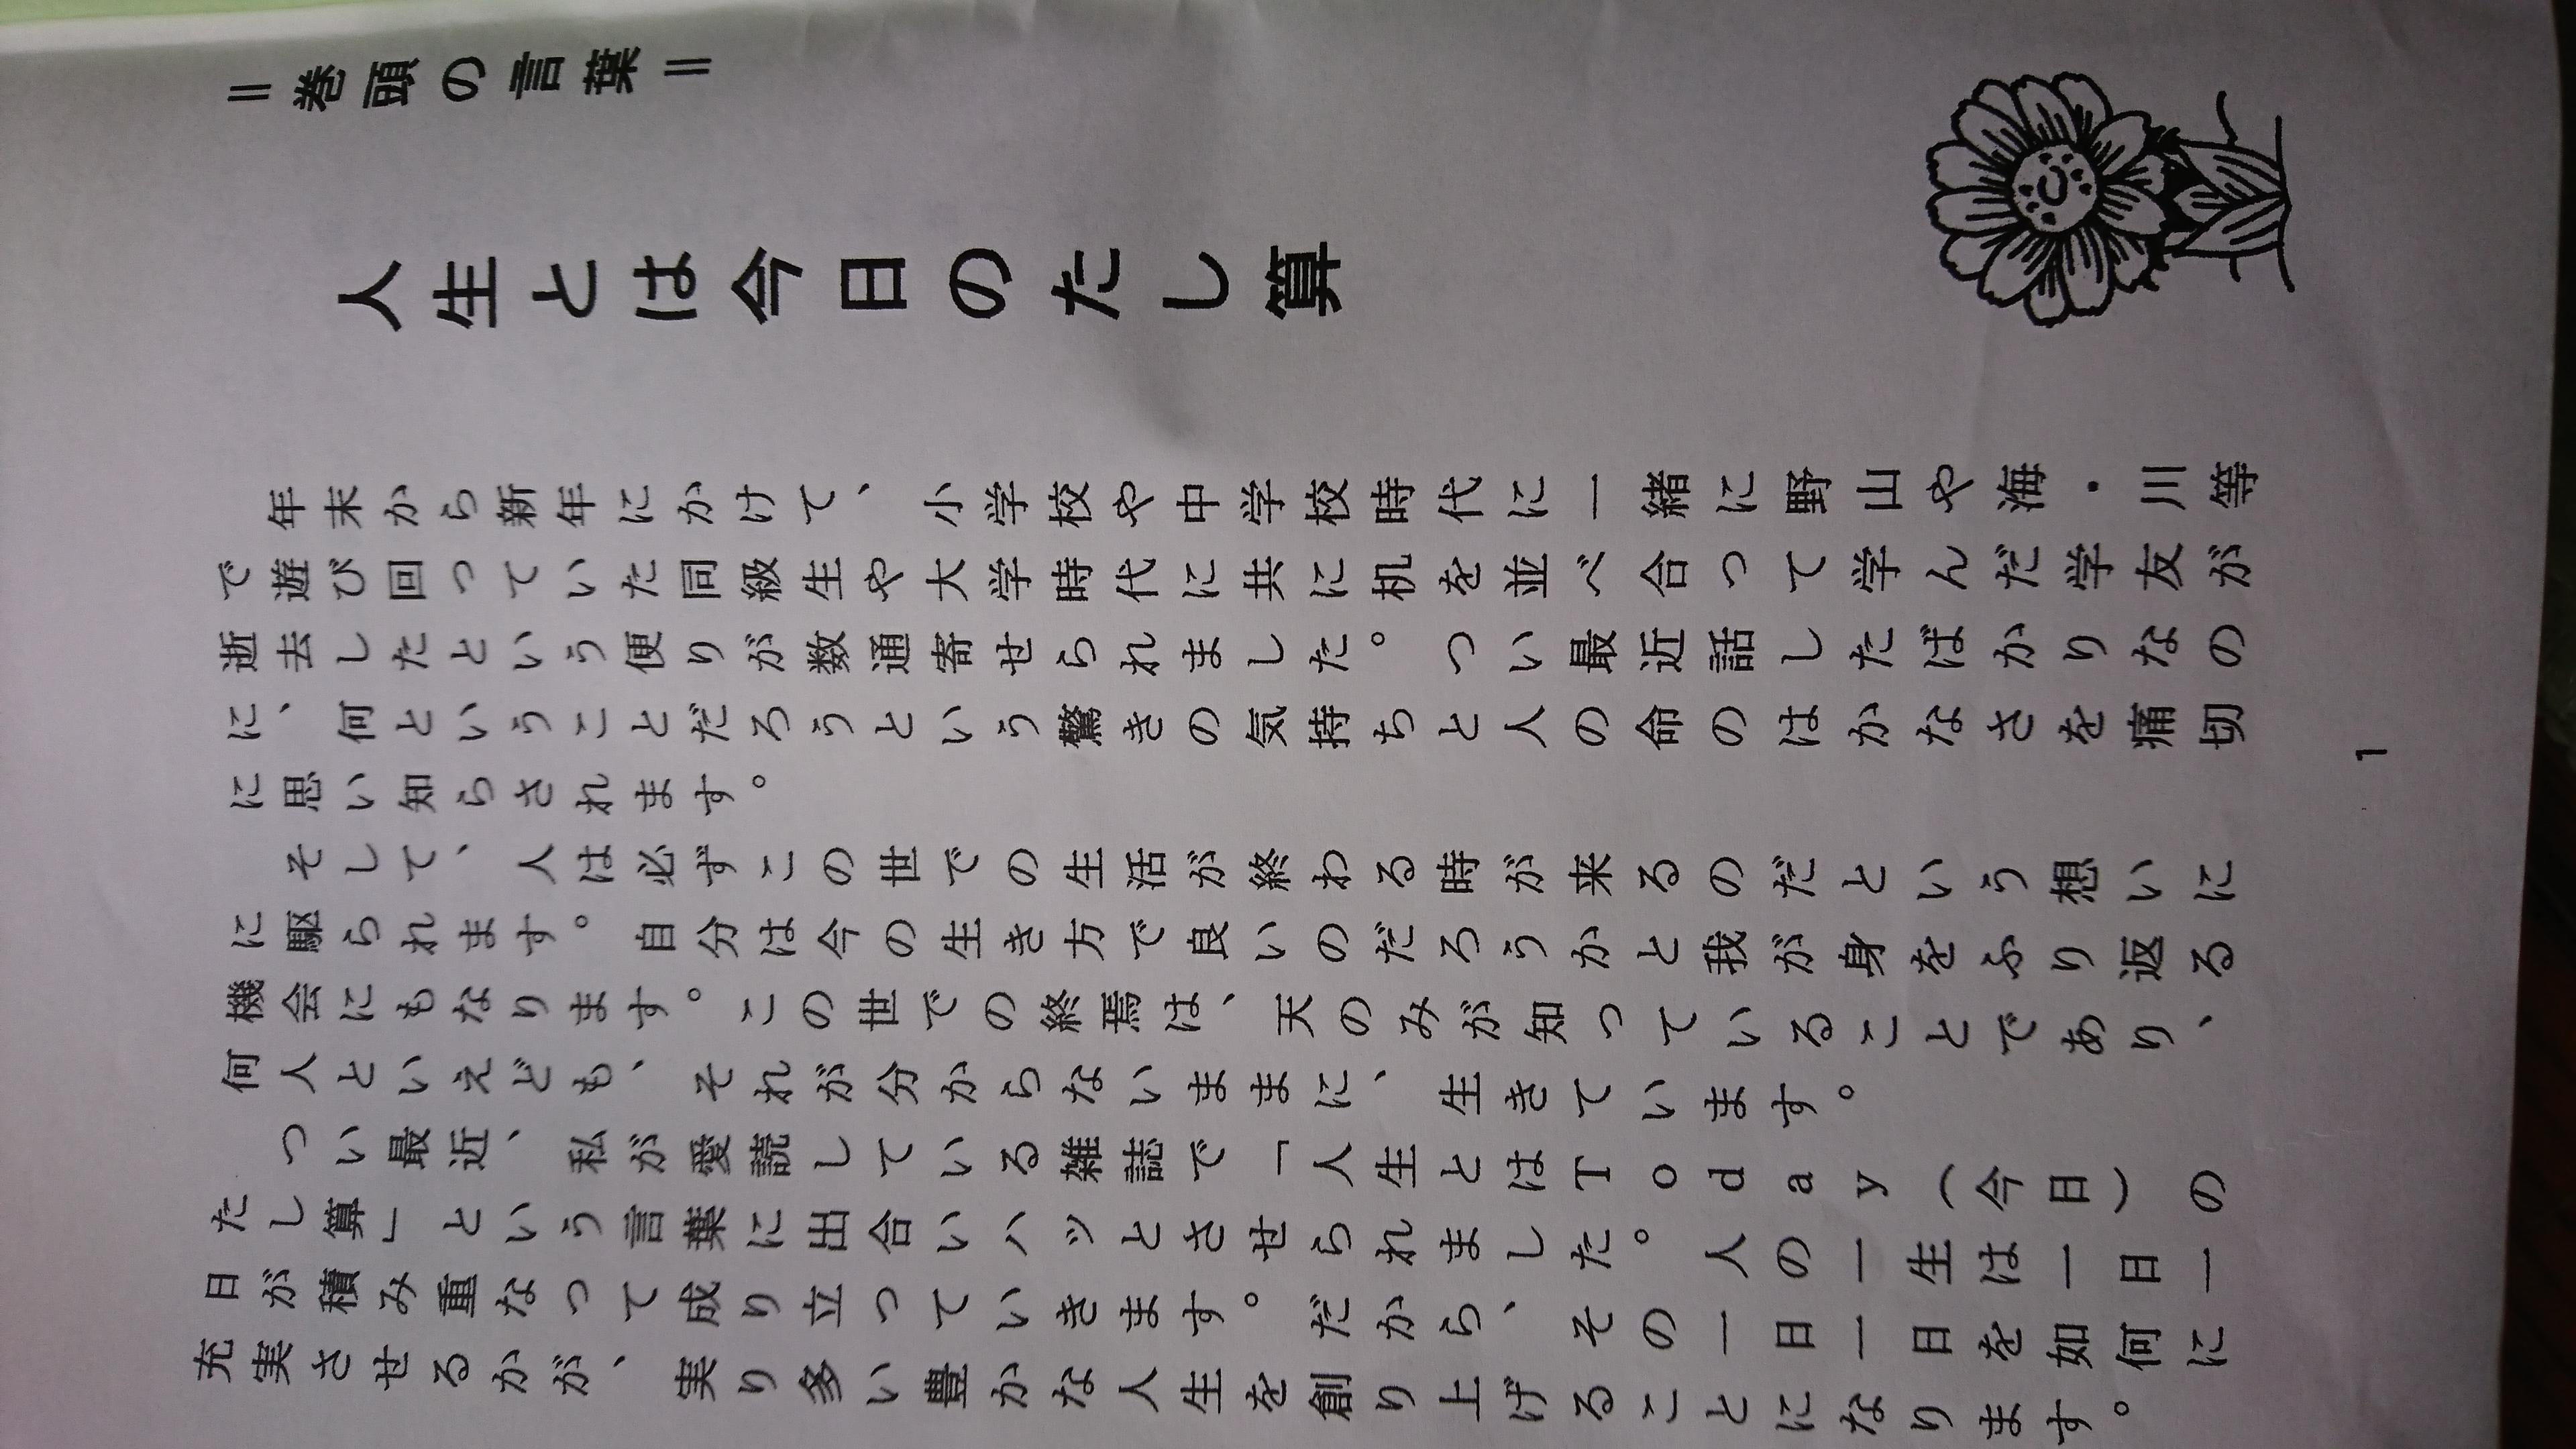 ＝巻頭の言葉＝
人生とは今日のたし算
年末から新年にかけて、小学校や中学校時代に一緒に野山や海・川等
で遊び回っていた同級生や大学時代に共に机を並べ合って学んだ学友が
逝去したという便りが数通寄せられました。つい最近話したばかりなの
に、何ということだろうという驚きの気持ちと人の命のはかなさを痛切
に思い知らされます。
そして、人は必ずこの世での生活が終わる時が来るのだという想いに
に駆られます。自分は今の生き方で良いのだろうかと我が身をふり返る
機会にもなります。この世での終焉は、天のみが知っていることであり、
何人といえども、それが分からないままに、生きています。
つい最近、私が愛読している雑誌で「人生とはＴｏｄａｙ（今日）の
たし算」という言葉に出合いハッとさせられました。人の一生は一日一
日が積み重なって成り立っていきます。だから、その一日一日を如何に
充実させるかが、実り多い豊かな人生を創り上げることになります。
1